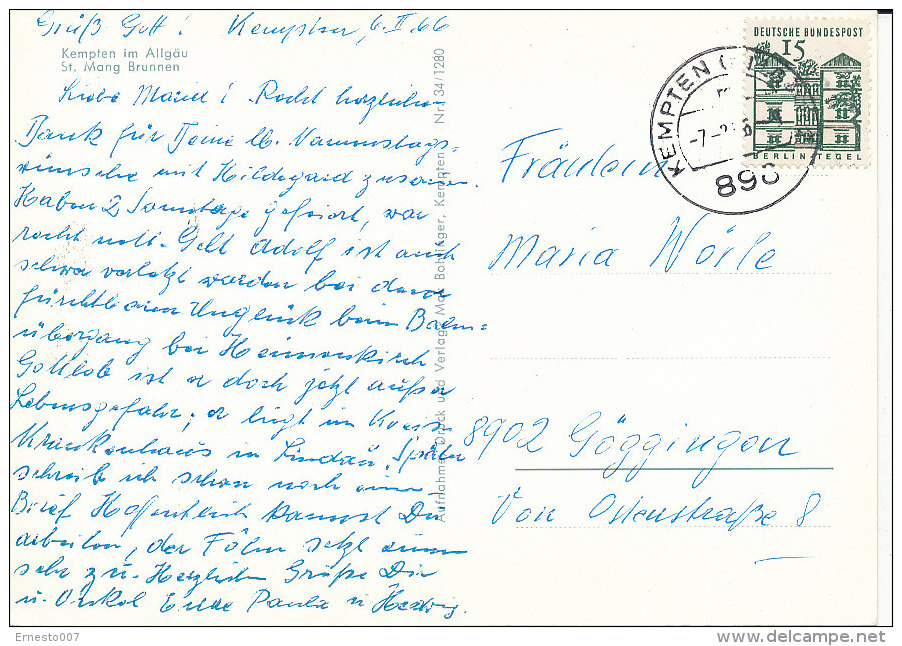 Grüß Gott! Kempten, 6.II.66
Kempten im Allgäu
St. Mang Brunnen
Liebe Maria! Recht herzlichen
Dank für Deine lb. Namenstags=
wünsche mit Hildegard zusammen
Haben 2 Sonntage gefeiert, war
recht nett. Gelt Adolf ist auch
schwer verletzt worden bei dem
furchtbaren Unglück beim Bahn=
übergang bei Heimenkirch
Gottlob ist er doch jetzt außer
Lebensgefahr, er liegt im Kreis=
Krankenhaus in Lindau. Später
schreib ich schon noch einen
Brief Hoffentlich kannst Du
arbeiten, der Föhn setzt einem
sehr zu. Herzliche Grüße Dir
u. Onkel Paula u Hedwig.
Aufnahme, Druck und Verlag: Max Bohlinger, Kempten Nr. 34/1280
DEUTSCHE BUNDESPOST
15
BERLIN-TEGEL
KEMPTEN
896
Fräulein
Maria Wörle
8902 Göggingen
Von Ostenstraße 8
Ernesto007
www.delcampe.net